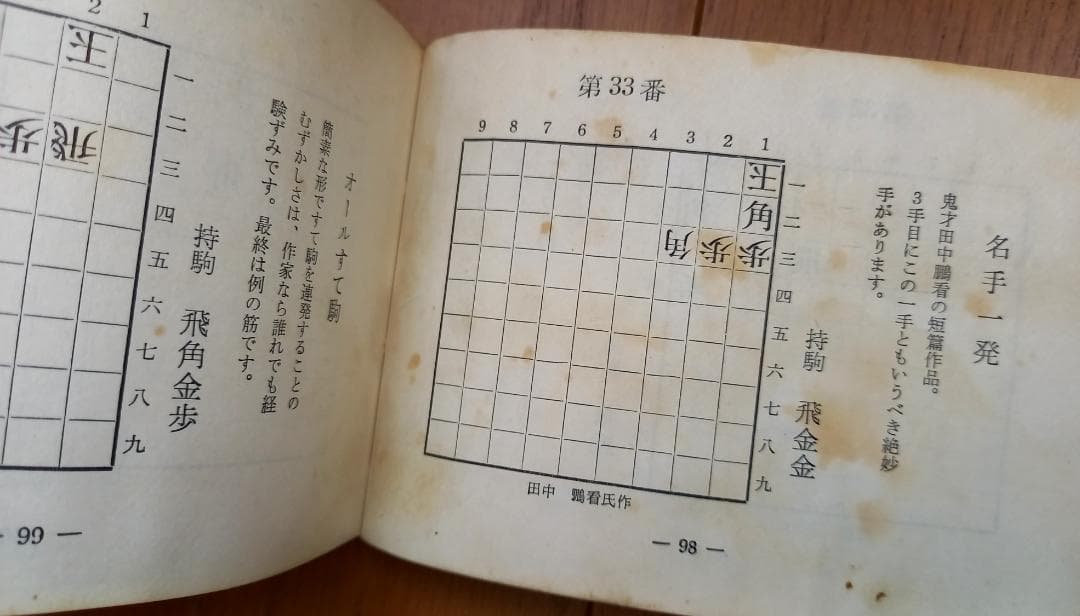 第33番
9 8 7 6 5 4 3 2 1
王 一
角 二
角 歩 歩 三
四
五
六
七
八
九
名手一発
鬼才田中鵬看の短篇作品。
3手目にこの一手ともいうべき絶妙
手があります。
持駒 飛金金
田中 鵬看氏作
— 98 —
2 1
王 一
二
歩 飛 三
四
五
六
七
八
九
オールすて駒
簡素な形ですて駒を連発することの
むずかしさは、作家なら誰れでも経
験ずみです。最終は例の筋です。
持駒 飛角金歩
99 —